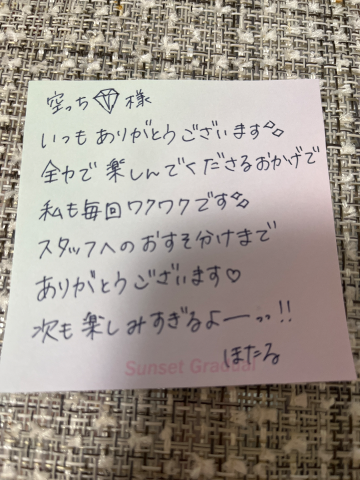 空っち💎様
いつもありがとうございます✨
全力で楽しんでくださるおかげで
私も毎回ワクワクです✨
スタッフへのおすそ分けまで
ありがとうございます♡
次も楽しみすぎるよーっっ!!
ほたる
Sunset Gradual